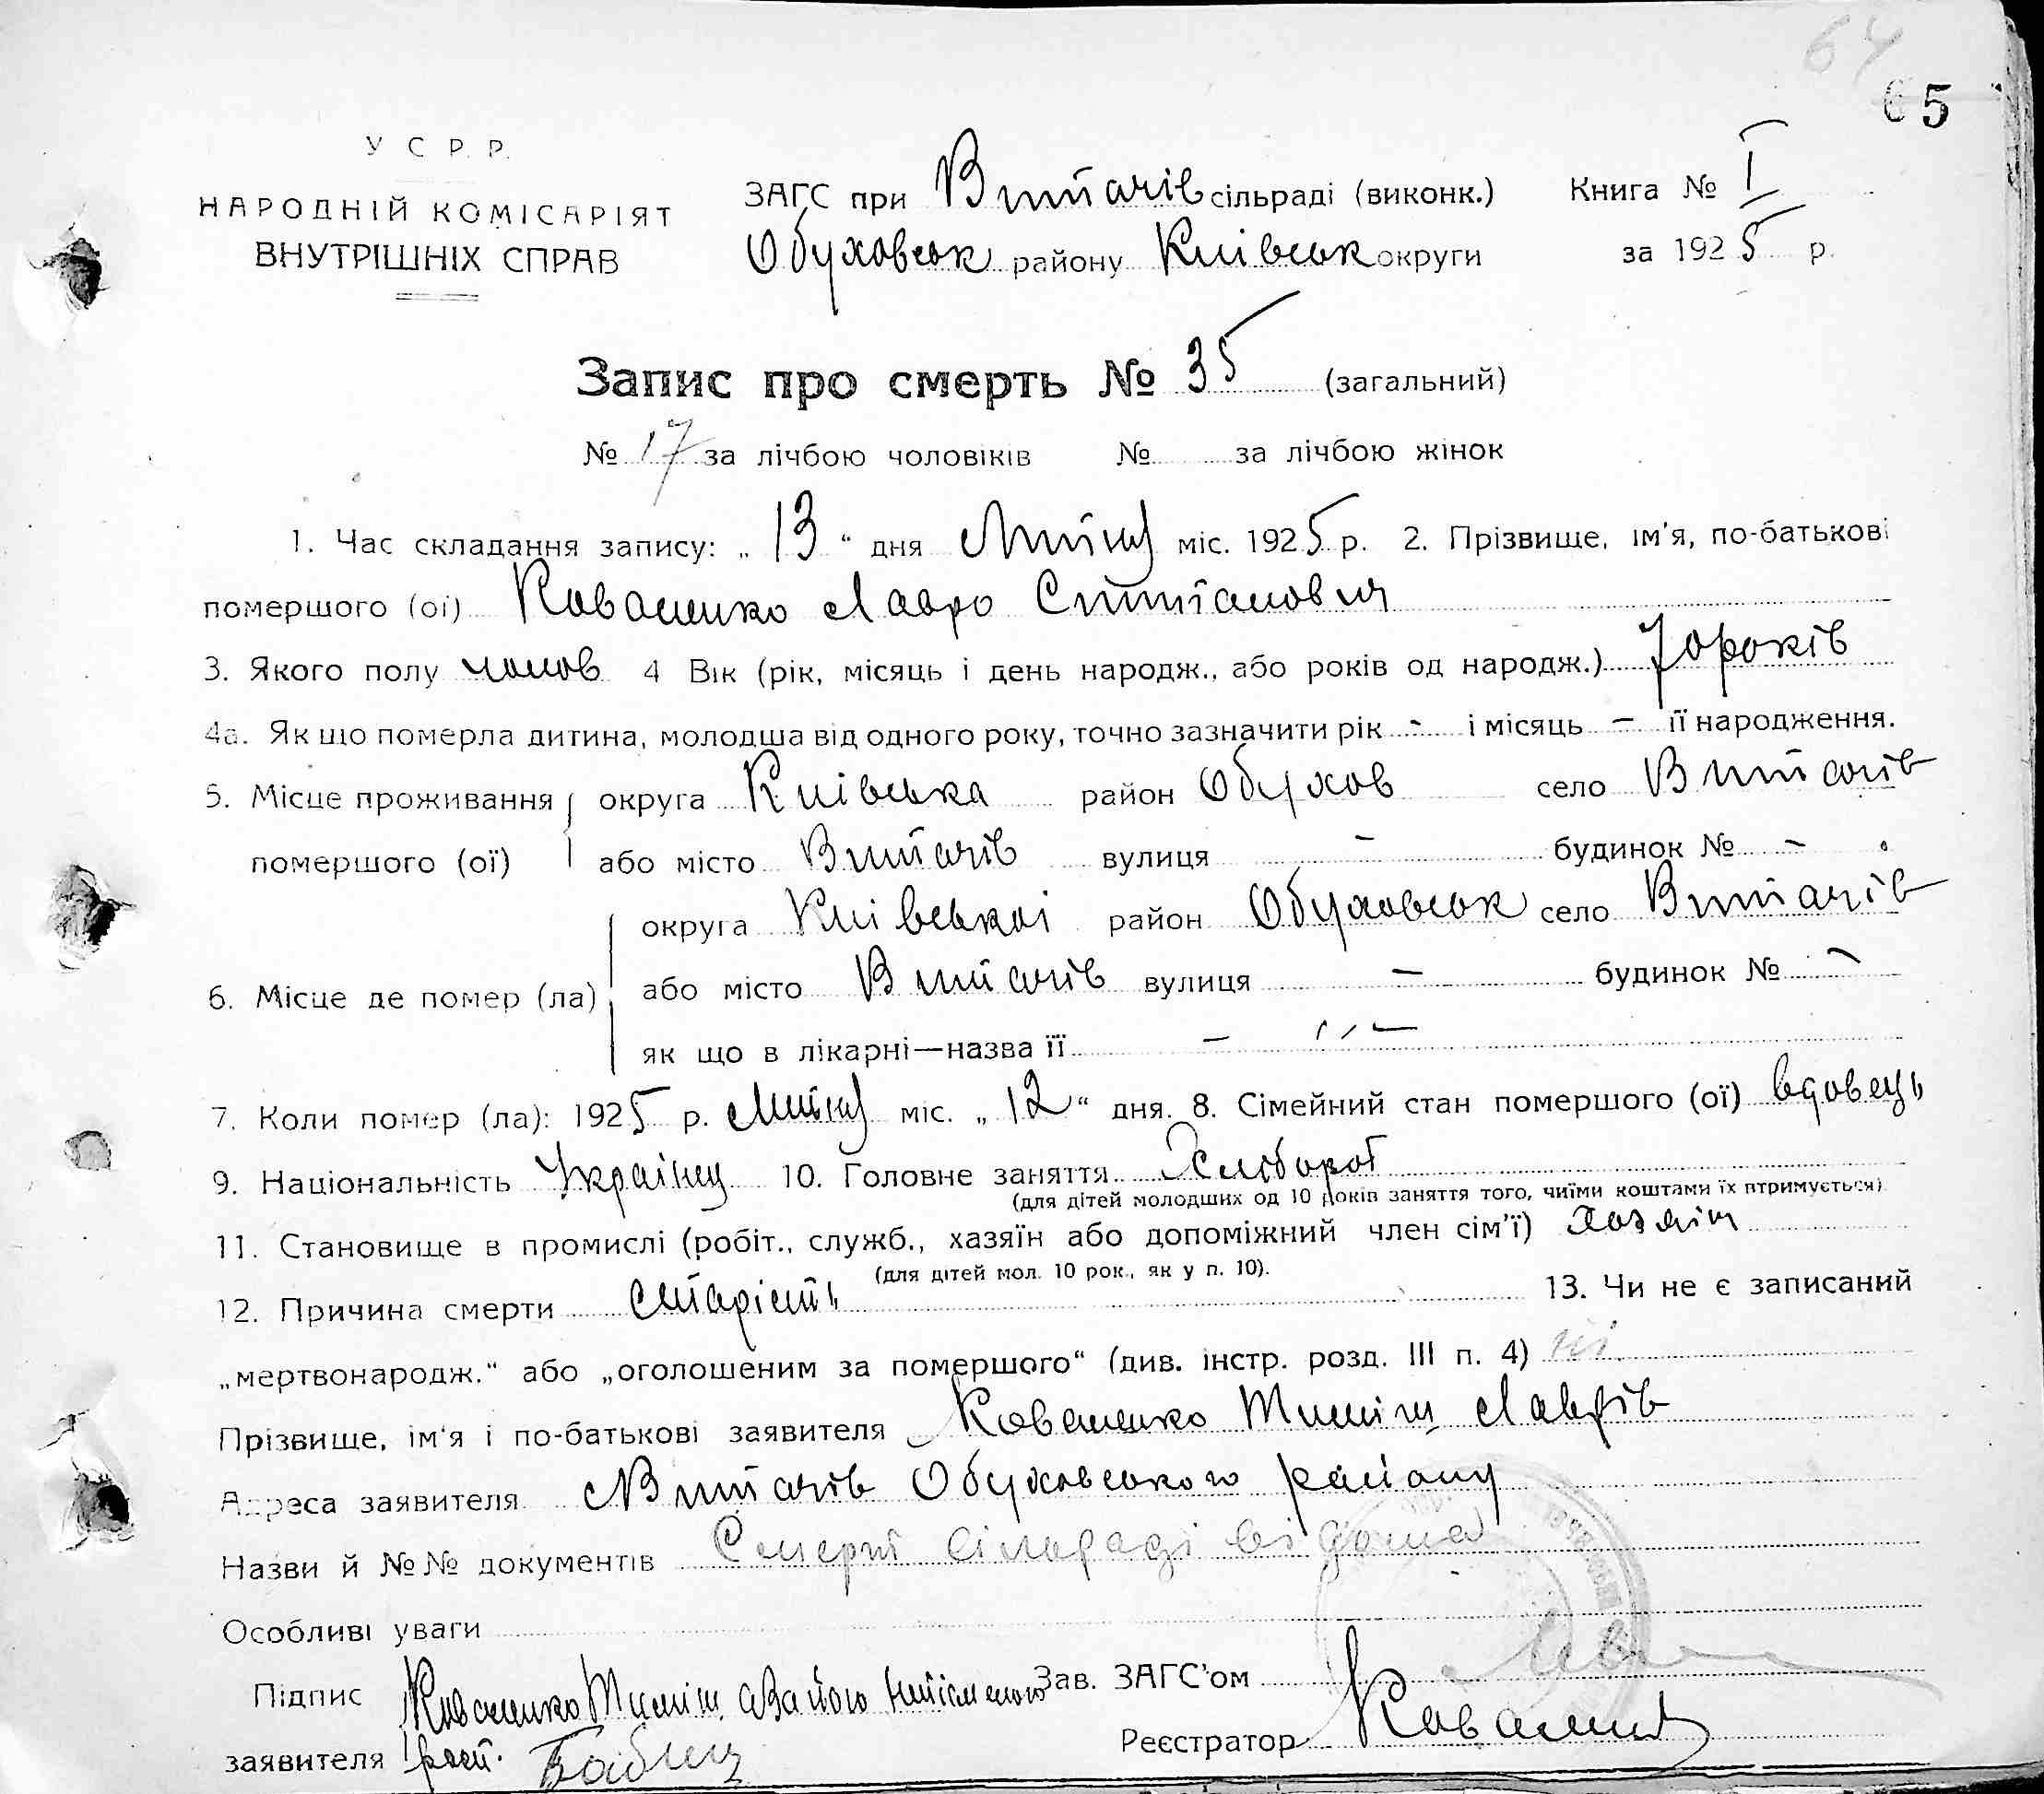 64
65
У С Р. Р.
НАРОДНІЙ КОМІСАРІЯТ
ВНУТРІШНІХ СПРАВ
ЗАГС при Витачів сільраді (виконк.) Книга № I
Обуховськ району Київськ округи за 1925 р.
Запис про смерть № 35 (загальний)
№ 17 за лічбою чоловіків № за лічбою жінок
1. Час складання запису: „ 13 “ дня Липня міс. 1925 р. 2. Прізвище, ім'я, по-батькові
помершого (ої) Коваленко Лавро
3. Якого полу чолов 4 Вік (рік, місяць і день народж., або років од народж.) 70 років
4а. Як що померла дитина, молодша від одного року, точно зазначити рік - і місяць — її народження.
5. Місце проживання округа Київська район Обухов село Витачів
помершого (ої) або місто Витачів вулиця — будинок № —
округа Київської район Обуховськ село Витачів
6. Місце де помер (ла) або місто Витачів вулиця — будинок № —
як що в лікарні—назва її — „ —
7. Коли помер (ла): 1925 р. Липня міс. „ 12 “ дня. 8. Сімейний стан помершого (ої) вдовець
9. Національність Українец 10. Головне заняття Хлібороб
(для дітей молодших од 10 років заняття того, чиїми коштами їх втримується)
11. Становище в промислі (робіт., служб., хазяїн або допоміжний член сім'ї) хозяїн
(для дітей мол. 10 рок., як у п. 10).
12. Причина смерти старість 13. Чи не є записаний
„мертвонародж.“ або „оголошеним за помершого“ (див. інстр. розд. III п. 4) ні
Прізвище, ім'я і по-батькові заявителя Коваленко Тиміш Лаврів
Адреса заявителя Витачів Обуховського району
Назви й №№ документів Смерть сільраді відома
Особливі уваги
Підпис Коваленко Тиміш а за його неписьменого Зав. ЗАГС'ом
заявителя рост. Реєстратор